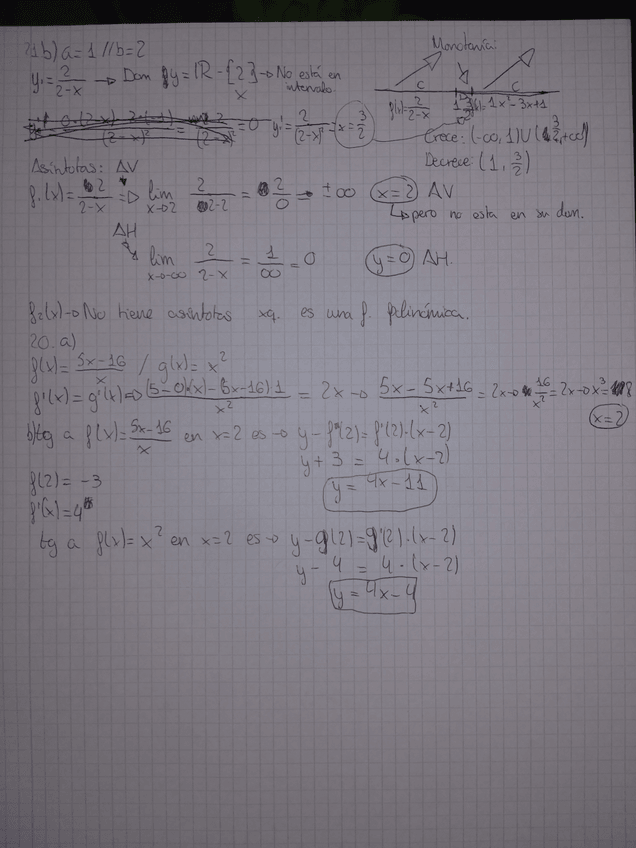 21 b) a=1 // b=2
Monotonía:
y₁ = 2/(2-x) → Dom y = ℝ - {2} → No está en intervalo.
C C
f₁(x) = 2/(2-x) 1 3/2 f₂(x) = 1x² - 3x + 1
y' = 2/(2-x)² x = 3/2
Crece: (-∞, 1) ∪ (3/2, +∞)
Decrece: (1, 3/2)
Asíntotas: AV
f₁(x) = 2/(2-x) ⇒ lim x→2 2/(2-2) = 2/0 = ±∞ x=2 AV
↳ pero no esta en su dom.
AH
lim x→-∞ 2/(2-x) = 1/∞ = 0 y=0 AH.
f₂(x) → No tiene asíntotas xq. es una f. polinómica.
20. a)
f(x) = (5x-16)/x / g(x) = x²
f'(x) = g'(x) ⇒ ((5-0)(x) - (5x-16)·1)/x² = 2x → (5x - 5x + 16)/x² = 2x → 16/x² = 2x → x³ = 8
x=2
b) tg a f(x) = (5x-16)/x en x=2 es → y - f(2) = f'(2)·(x-2)
y + 3 = 4·(x-2)
y = 4x - 11
f(2) = -3
f'(x) = 4
tg a f(x) = x² en x=2 es → y - g(2) = g'(2)·(x-2)
y - 4 = 4·(x-2)
y = 4x - 4